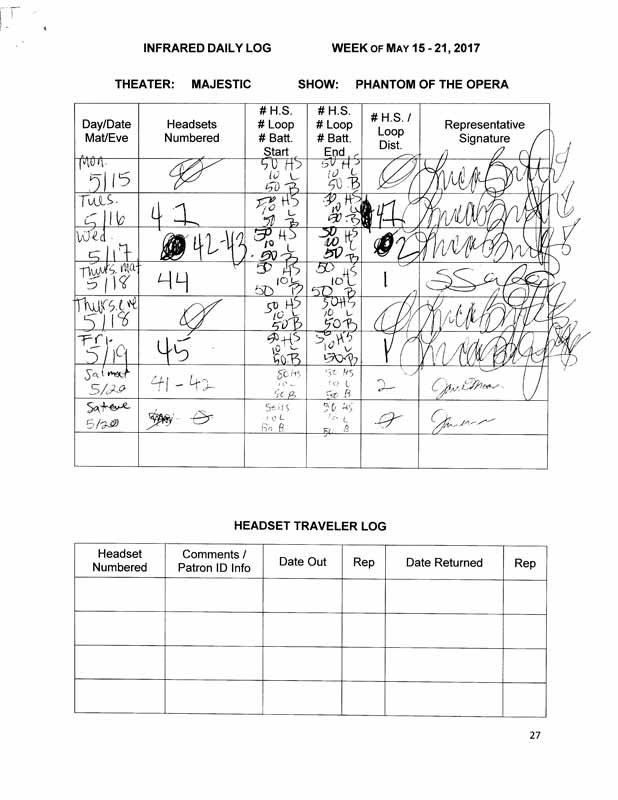 INFRARED DAILY LOG WEEK OF MAY 15 - 21, 2017
THEATER: MAJESTIC SHOW: PHANTOM OF THE OPERA
Day/Date Mat/Eve
Headsets Numbered
# H.S. # Loop # Batt. Start
# H.S. # Loop # Batt. End
# H.S. / Loop Dist.
Representative Signature
Mon. 5/15 Ø 50 HS 10 L 50 B 50 HS 10 L 50 B Ø
Tues. 5/16 47 50 HS 10 L 50 B 50 HS 10 L 50 B
Wed. 5/17 42-43 50 HS 10 L 50 B 50 HS 10 L 50 B 2
Thurs. mat 5/18 44 50 HS 10 L 50 B 50 HS 10 L 50 B 1
Thurs. eve 5/18 Ø 50 HS 10 L 50 B 50 HS 10 L 50 B Ø
Fri. 5/19 45 50 HS 10 L 50 B 50 HS 10 L 50 B 1
Sat mat 5/20 41 - 42 50 HS 10 L 50 B 50 HS 10 L 50 B 2
Sat eve 5/20 Ø 50 HS 10 L 50 B 50 HS 10 L 50 B Ø
HEADSET TRAVELER LOG
Headset Numbered
Comments / Patron ID Info
Date Out
Rep
Date Returned
Rep
27